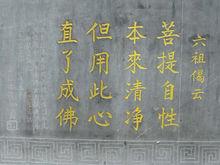 六祖偈云
菩提自性
本來清净
但用此心
直了成佛